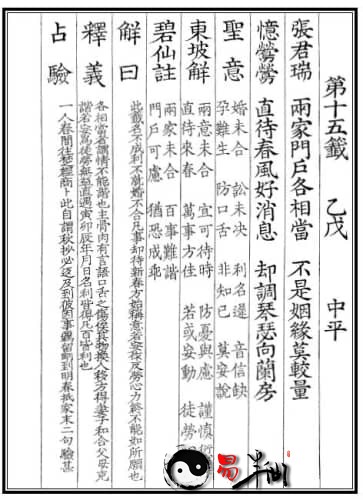 第十五籤 乙戊 中平
張君瑞 兩家門戶各相當 不是姻緣莫較量
憶鶯鶯 直待春風好消息 却調琴瑟向蘭房
聖意
婚未合 訟未決 利名遲 音信缺
孕難生 防口舌 非知己 莫妄說
東坡解
兩意未合 宜可待時 防憂與慮 謹慎
直待來春 萬事方佳 若或妄動 徒勞
碧仙註
兩家未合 百事難諧
門戶可慮 猶恐成乖
解曰
此籤名不成利不就婚不合凡事却待新春方始稱意若妄求及勞心力終不能如所願也
釋義
各相當者謂情不能諧也主骨肉有言語口舌之傷俟其物換人移方得妻子和合父母克
諧若妄為徒勞無益直遇寅卯辰年月日名利皆得凡百皆利也
占驗
一人春間往楚經商卜此自謂秋抄必返及到彼因事羈留師到明春抵家末二句驗甚
易半仙